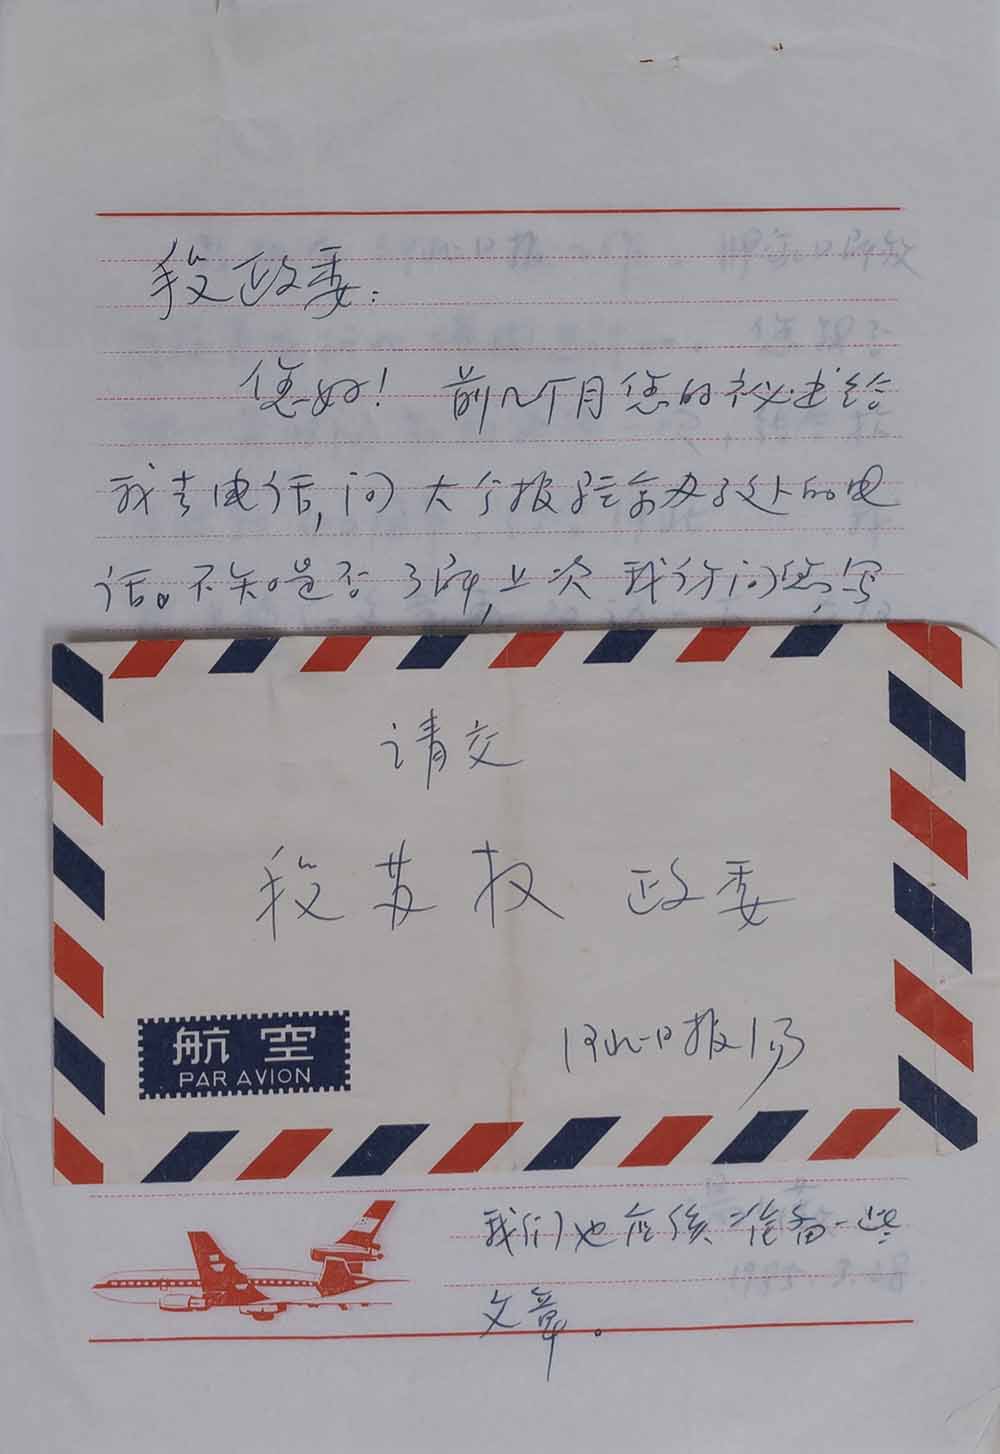 段政委：
您好！ 前几个月您的秘书给
我去电话，问大公报驻京办事处的电
话。不知是否了解，上次我待问您，写
请交
段苏权 政委
航空
PAR AVION
日报
我们也应该准备一些
文章。